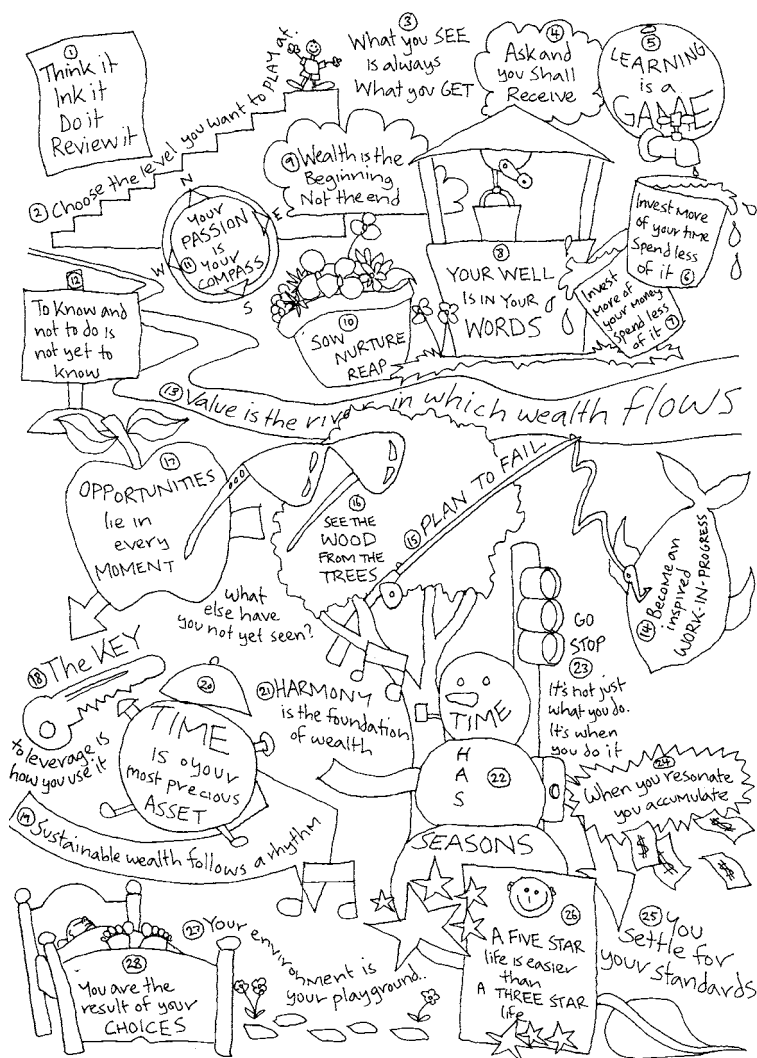 1
Think it
Ink it
Do it
Review it
2 Choose the level you want to PLAY at.
3
What you SEE
is always
What you GET
4
Ask and
you shall
Receive
5
LEARNING
is a
GAME
Invest More
of your time
Spend less
of it 6
Invest
More of
your Money
Spend less
of it 7
8
YOUR WELL
IS IN YOUR
WORDS
9 Wealth is the
Beginning
Not the end
10
SOW
NURTURE
REAP
N
E
S
W
YOUR
PASSION
IS
11 YOUR
COMPASS
12
To Know and
not to do is
not yet to
know
13 Value is the river in which wealth flows
14 Become an
inspired
WORK-IN-PROGRESS
15 PLAN TO FAIL
16
SEE THE
WOOD
FROM THE
TREES
17
OPPORTUNITIES
lie in
every
MOMENT
What
else have
you not yet seen?
18 The KEY
to leverage is
how you use it
19 Sustainable wealth follows a rhythm
20
TIME
is your
most precious
ASSET
21 HARMONY
is the foundation
of wealth
TIME
H
A
S
22
SEASONS
GO
STOP
23
It's not just
what you do.
It's when
you do it
24
When you resonate
you accumulate
$$
$$
$$
25 You
settle for
your standards
26
A FIVE STAR
life is easier
than
A THREE STAR
life
27 Your environment is
your playground..
28
You are the
result of your
CHOICES